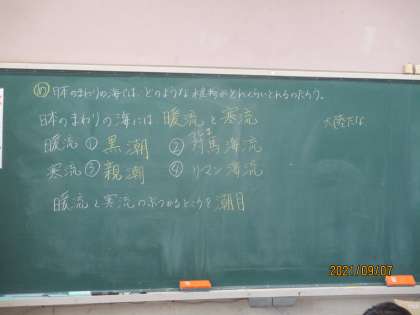 め 日本のまわりの海では、どのような種類がどれくらいとれるのだろう。
日本のまわりの海には 暖流 と 寒流
大陸だな
暖流 ① 黒潮 ② 対馬海流
つしま
寒流 ③ 親潮 ④ リマン海流
暖流と寒流のぶつかるところを 潮目
2021/09/07